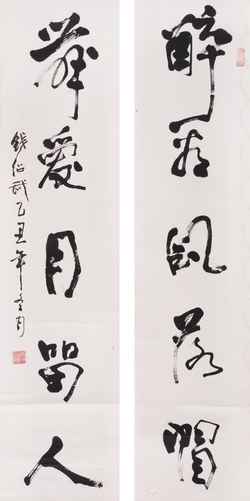 醉看風落帽
舞愛月留人
錢紹武乙丑年立月